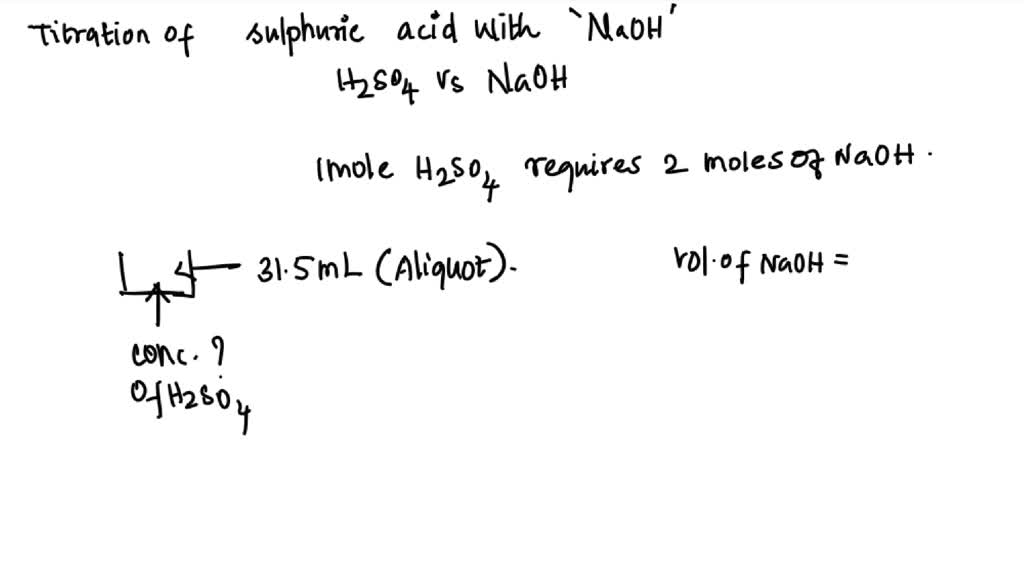 Titration of sulphuric acid with `NaOH'
H2SO4 vs NaOH
1mole H2SO4 requires 2 moles of NaOH.
31.5mL (Aliquot).
vol. of NaOH =
conc. ?
Of H2SO4